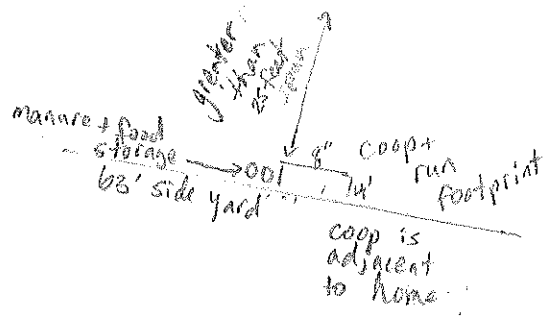 greater
than
25 feet
manure + food
storage
001
8"
Coop +
run
footprint
63' side yard
4'
coop is
adjacent
to home